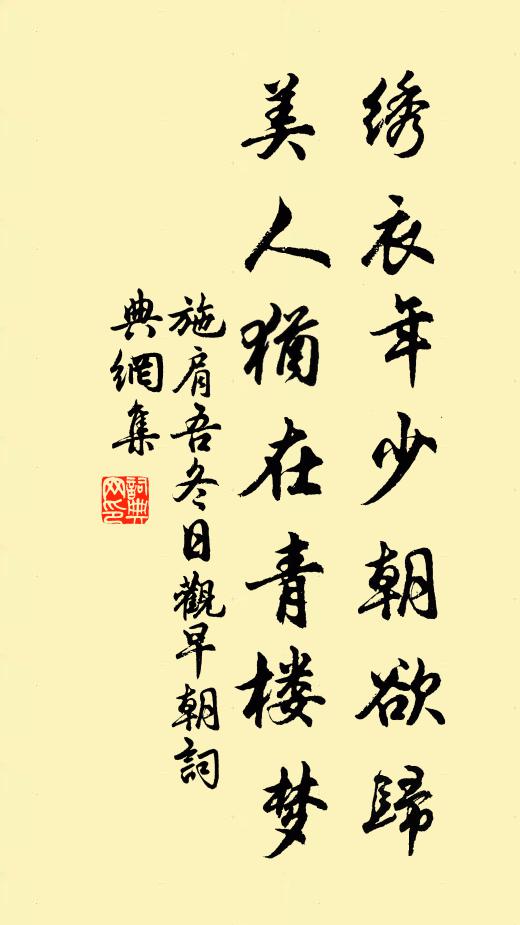 绣衣年少朝欲歸
美人猶在青楼梦
施肩吾冬日觀早朝詞
典網集
詞典网印